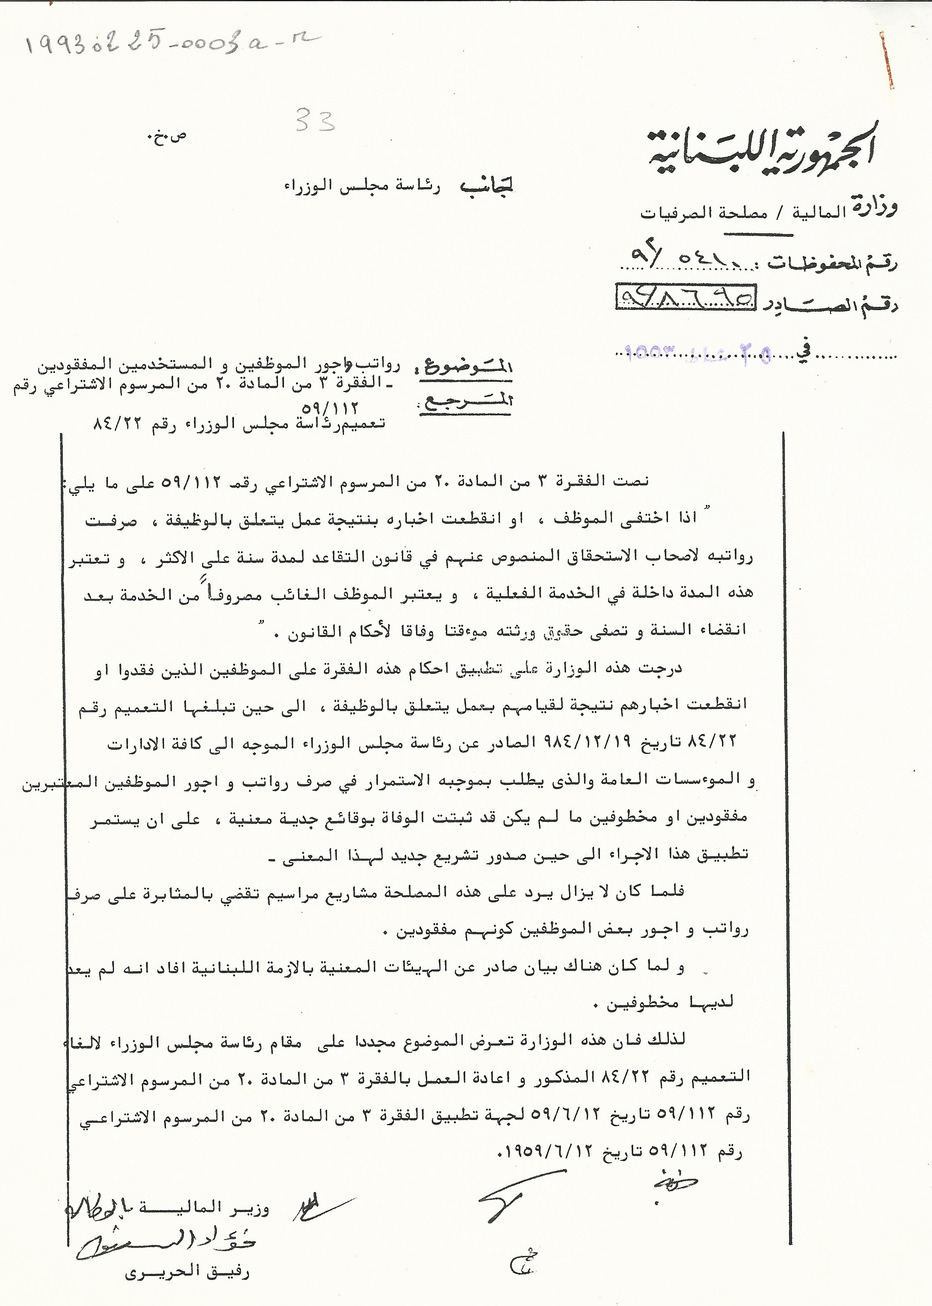 19930225-0003a-r
33
ص.خ.
الجمهورية اللبنانية
جانب رئاسة مجلس الوزراء
وزارة المالية / مصلحة الصرفيات
رقم المحفوظات :
رقم الصادر
في
الموضوع: رواتب واجور الموظفين و المستخدمين المفقودين
المرجع: ـ الفقرة ٣ من المادة ٢٠ من المرسوم الاشتراعي رقم
٥٩/١١٢
تعميم رئاسة مجلس الوزراء رقم ٨٤/٢٢
نصت الفقرة ٣ من المادة ٢٠ من المرسوم الاشتراعي رقم ٥٩/١١٢ على ما يلي:
" اذا اختفى الموظف ، او انقطعت اخباره بنتيجة عمل يتعلق بالوظيفة ، صرفت
رواتبه لاصحاب الاستحقاق المنصوص عنهم في قانون التقاعد لمدة سنة على الاكثر ، و تعتبر
هذه المدة داخلة في الخدمة الفعلية ، و يعتبر الموظف الغائب مصروفاً من الخدمة بعد
انقضاء السنة و تصفى حقوق ورثته موءقتا وفاقا لأحكام القانون . "
درجت هذه الوزارة على تطبيق احكام هذه الفقرة على الموظفين الذين فقدوا او
انقطعت اخبارهم نتيجة لقيامهم بعمل يتعلق بالوظيفة ، الى حين تبلغها التعميم رقم
٨٤/٢٢ تاريخ ٩٨٤/١٢/١٩ الصادر عن رئاسة مجلس الوزراء الموجه الى كافة الادارات
و الموءسسات العامة والذى يطلب بموجبه الاستمرار في صرف رواتب و اجور الموظفين المعتبرين
مفقودين او مخطوفين ما لم يكن قد ثبتت الوفاة بوقائع جدية معنية ، على ان يستمر
تطبيق هذا الاجراء الى حين صدور تشريع جديد لهذا المعنى ـ
فلما كان لا يزال يرد على هذه المصلحة مشاريع مراسيم تقضي بالمثابرة على صرف
رواتب و اجور بعض الموظفين كونهم مفقودين .
و لما كان هناك بيان صادر عن الهيئات المعنية بالازمة اللبنانية افاد انه لم يعد
لديها مخطوفين .
لذلك فان هذه الوزارة تعرض الموضوع مجددا على مقام رئاسة مجلس الوزراء لالغاء
التعميم رقم ٨٤/٢٢ المذكور و اعادة العمل بالفقرة ٣ من المادة ٢٠ من المرسوم الاشتراعي
رقم ٥٩/١١٢ تاريخ ٥٩/٦/١٢ لجهة تطبيق الفقرة ٣ من المادة ٢٠ من المرسوم الاشتراعي
رقم ٥٩/١١٢ تاريخ ١٩٥٩/٦/١٢.
وزير المالية بالوكالة
فؤاد السنيورة
رفيق الحريرى